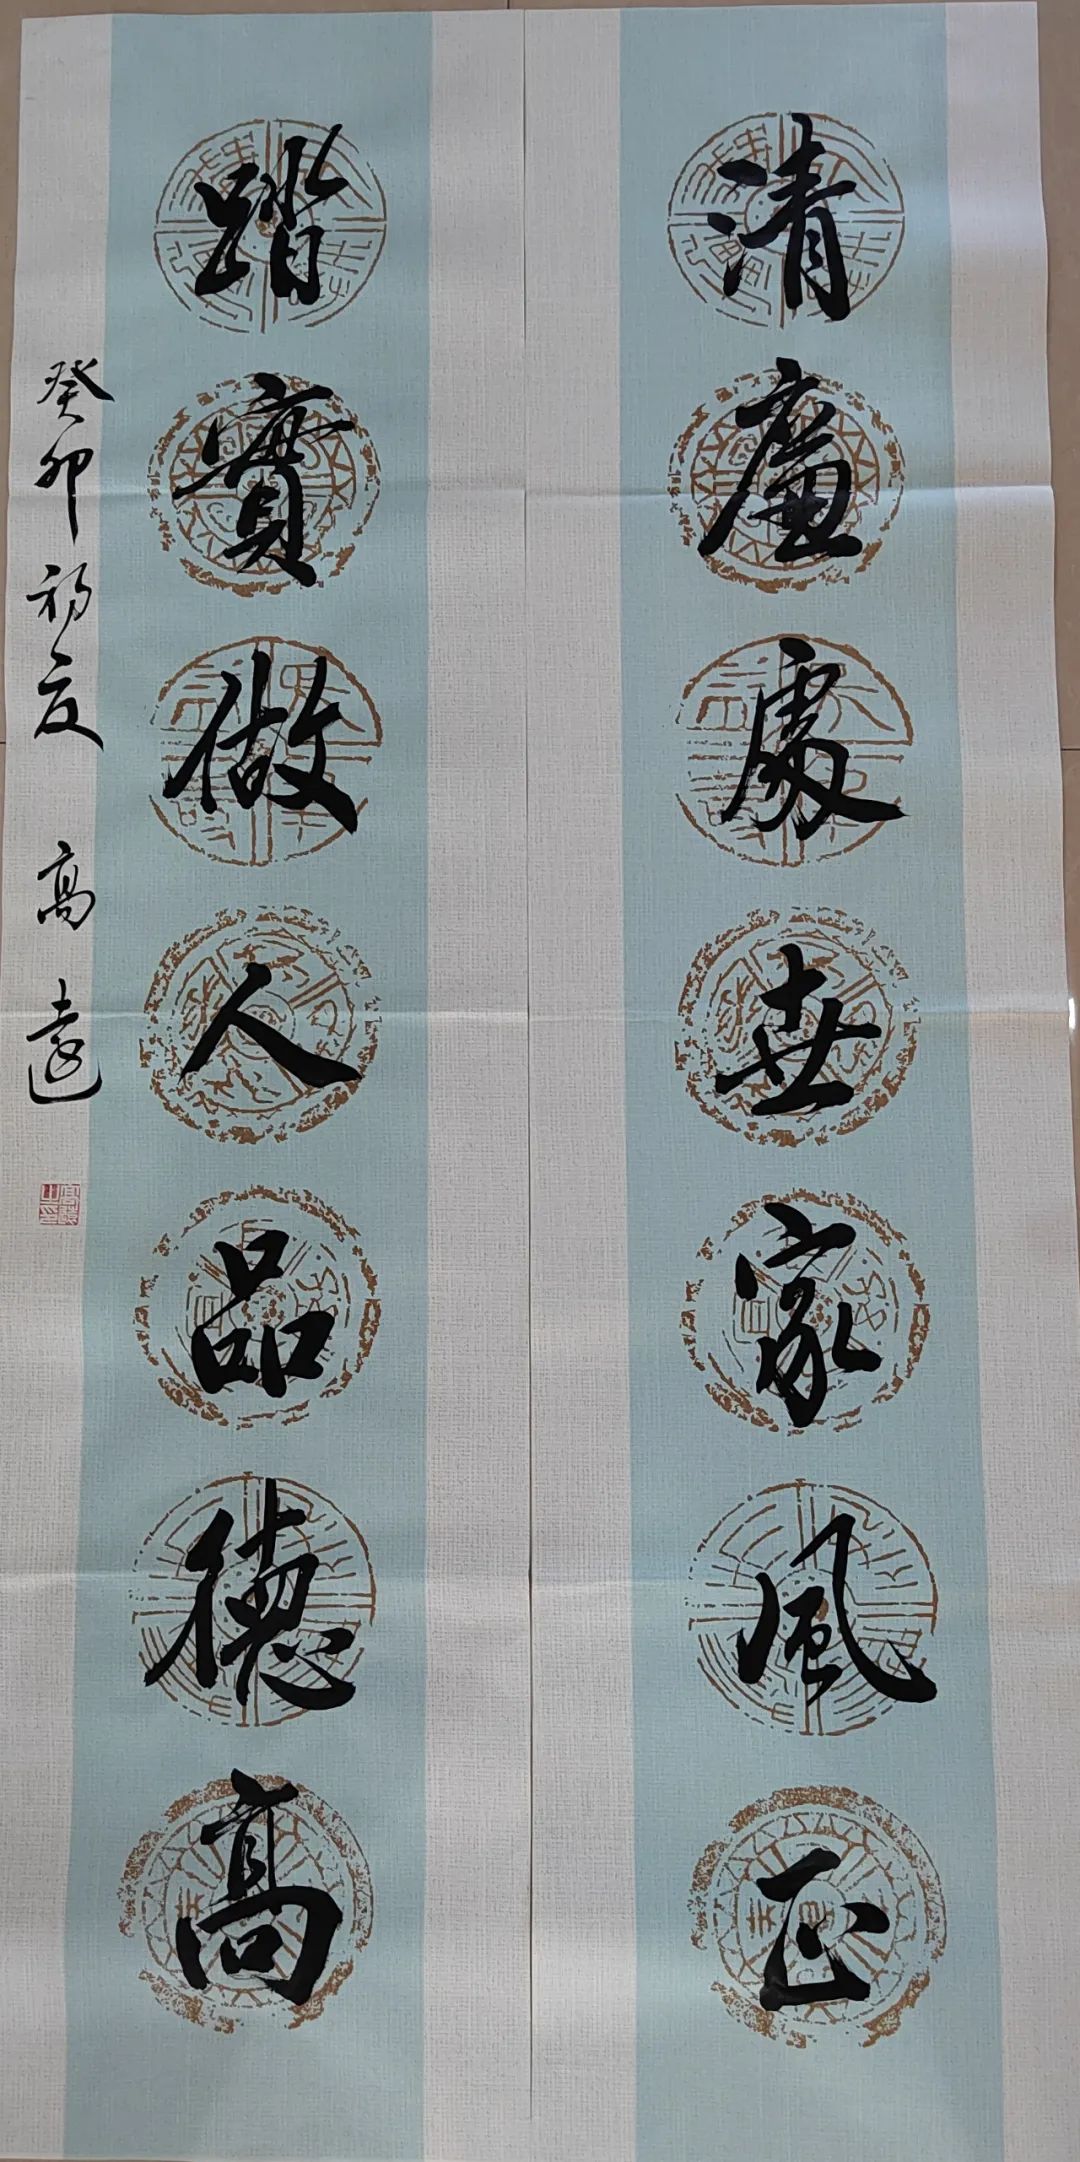 清廉處世家風正
踏實做人品德高
癸卯初夏 高遠